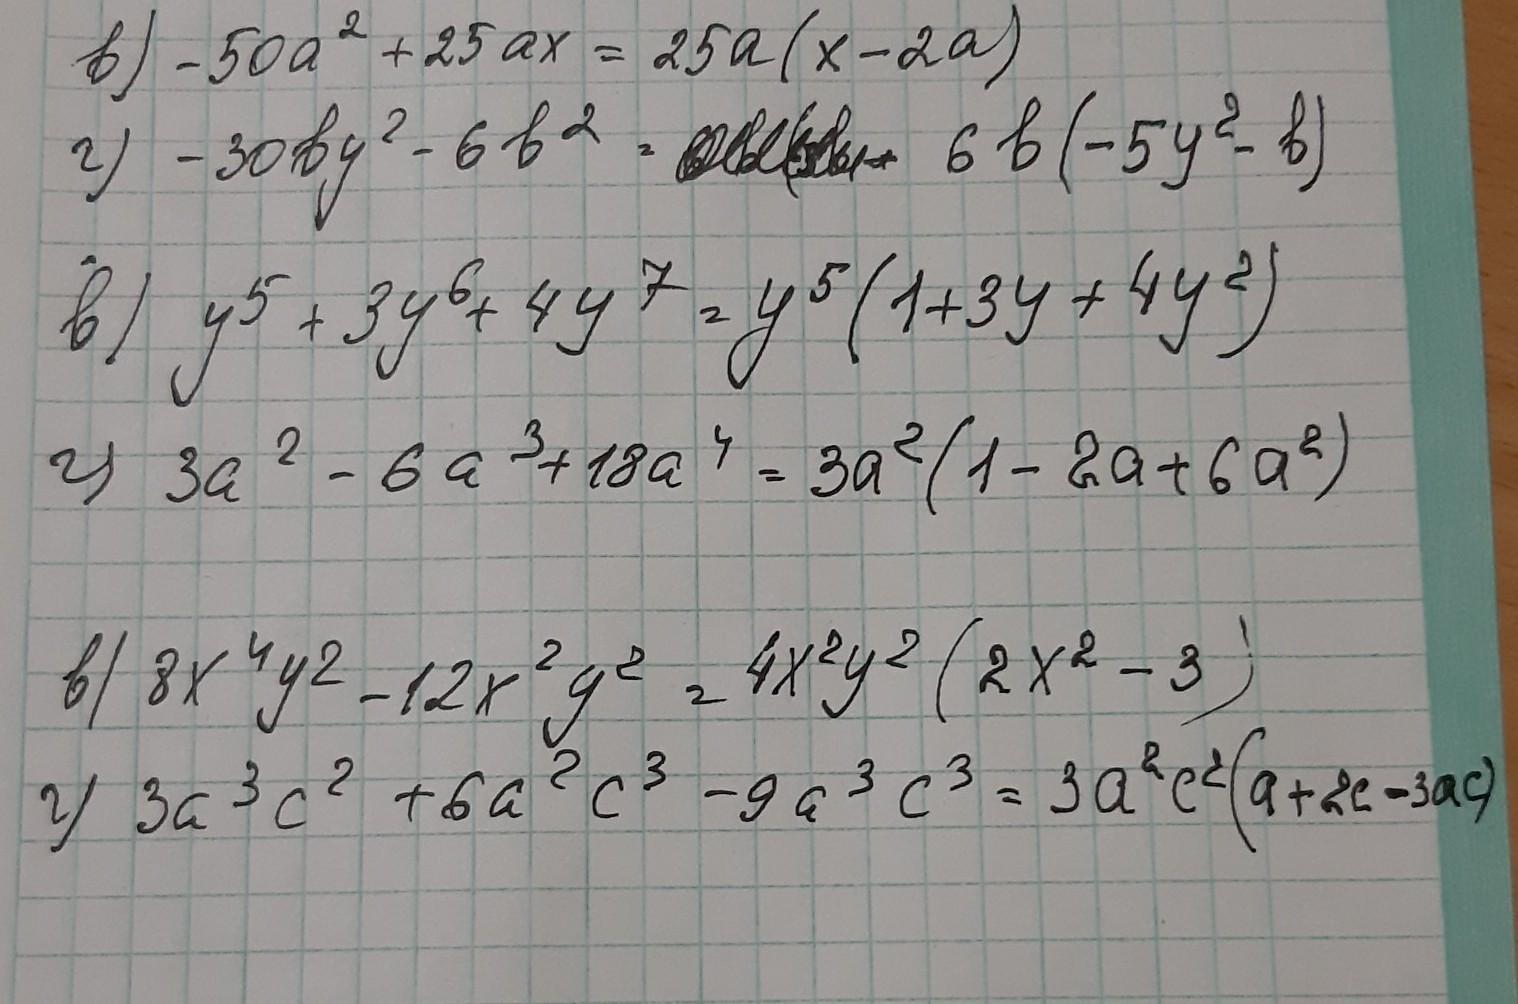 в) -50a² + 25ax = 25a(x - 2a)
г) -30by² - 6b² = 6b(-5y² - b)
в) y⁵ + 3y⁶ + 4y⁷ = y⁵(1 + 3y + 4y²)
г) 3a² - 6a³ + 18a⁴ = 3a²(1 - 2a + 6a²)
в) 8x⁴y² - 12x²y² = 4x²y²(2x² - 3)
г) 3a³c² + 6a²c³ - 9a³c³ = 3a²c²(a + 2c - 3ac)